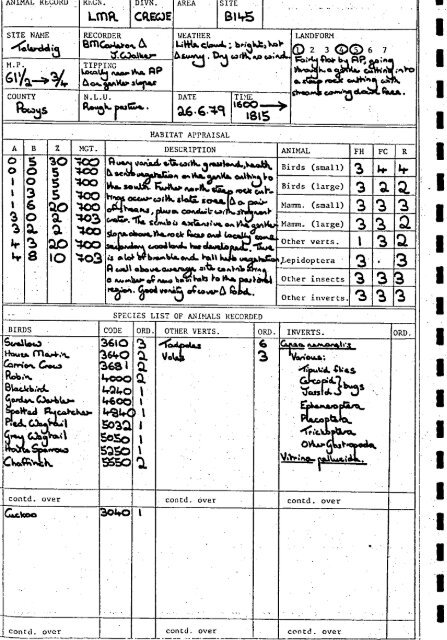 ANIMAL RECORD REGN. DIVN. AREA SITE
LMR CREWE B145
SITE NAME RECORDER WEATHER LANDFORM
Talerddig BM Carleton Δ Little cloud; bright, hot 1 2 3 4 5 6 7
J. Walker Δ sunny. Dry with no wind.
M.P. TIPPING Fairly flat by AP, going
61½ → ¾ Locally near the AP through a gentle cutting into
Δ on gentle slopes a steep rock cutting with
COUNTY N.L.U. DATE TIME streams coming down face.
Powys Rough pasture. 26.6.79 1600 → 1815
HABITAT APPRAISAL
A B Z MGT. DESCRIPTION ANIMAL FH FC R
0 5 30 700
0 0 5 700
1 0 5 700
1 3 5 700
1 6 20 700
3 0 2 703
3 2 2 700
4 3 20 700
4 8 10 703
A very varied site with grassland, heath
Δ scrub vegetation on the gentle cutting to
the south. Further north steep rock cut-
tings occur with slate scree Δ a pair
of streams, plus a conduit with stagnant
water. The scrub is extensive on the gentle
slope above the rock faces and locally some
secondary woodland has developed. There
is a lot of bramble and tall herb vegetation.
A well above average site contributing
a number of new habitats to the pastoral
region. Good variety of cover Δ food.
Birds (small) 3 4 4
Birds (large) 3 2 2
Mamm. (small) 3 3 3
Mamm. (large) 3 3 2
Other verts. 1 3 2
Lepidoptera 3 . 3
Other insects 3 3 3
Other inverts. 3 3 3
SPECIES LIST OF ANIMALS RECORDED
BIRDS CODE ORD. OTHER VERTS. ORD. INVERTS. ORD.
Swallow 3610 3 Tadpoles 6 Cepaea nemoralis
House Martin 3640 2 Voles 3 Various:
Carrion Crow 3681 2 Tipulid flies
Robin 4000 2 Cercopid } bugs
Blackbird 4240 1 Jassid
Garden Warbler 4600 1 Ephemeroptera
Spotted Flycatcher 4840 1 Plecoptera
Pied Wagtail 5032 1 Trichoptera
Grey Wagtail 5050 1 Other Gastropoda
House Sparrow 5250 1 Vitrina pellucida.
Chaffinch 5550 2
contd. over contd. over contd. over
Cuckoo 3040 1
contd. over contd. over contd. over